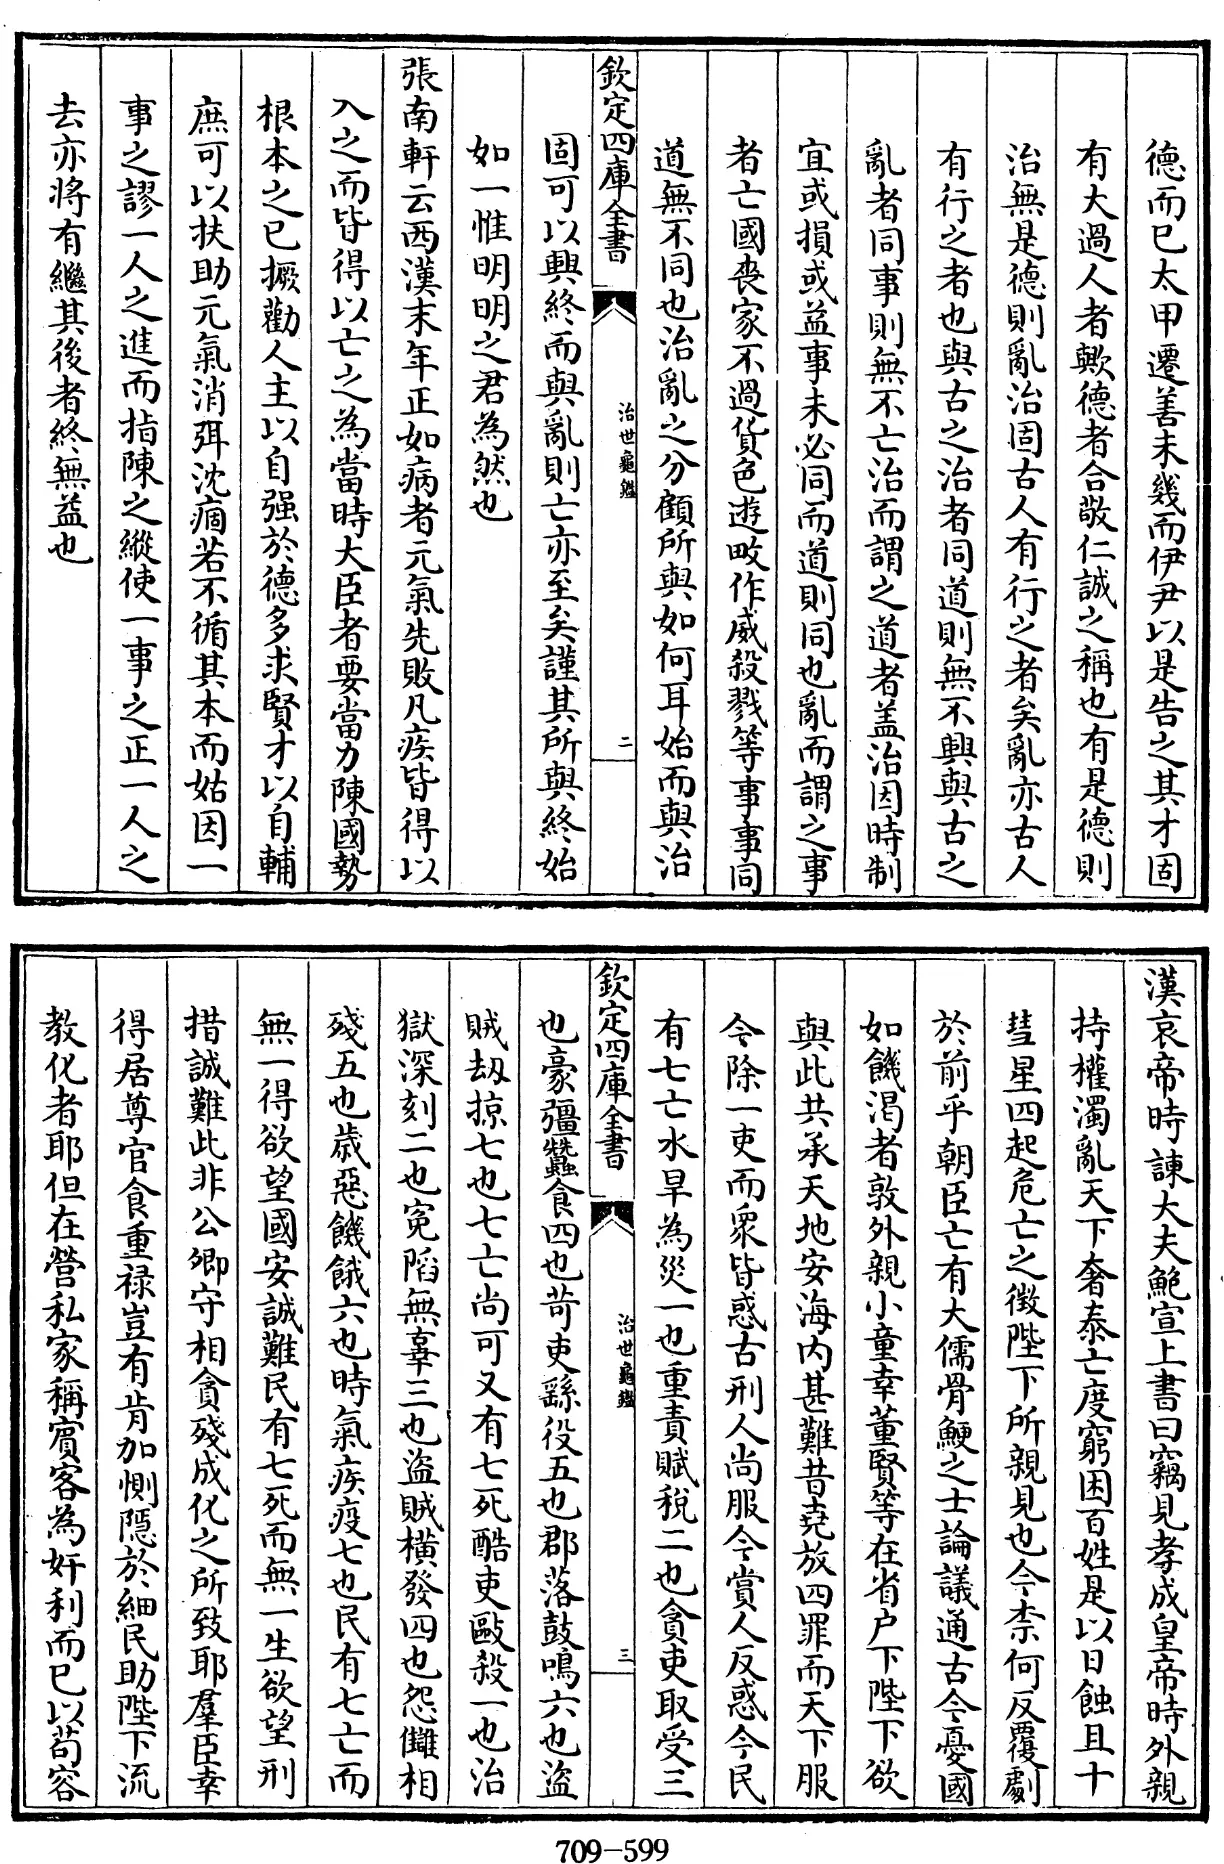 德而已太甲遷善未幾而伊尹以是告之其才固
有大過人者歟德者合敬仁誠之稱也有是德則
治無是德則亂治固古人有行之者矣亂亦古人
有行之者也與古之治者同道則無不興與古之
亂者同事則無不亡治而謂之道者盖治因時制
宜或損或益事未必同而道則同也亂而謂之事
者亡國喪家不過貨色遊畋作威殺戮等事事同
道無不同也治亂之分顧所與如何耳始而與治
欽定四庫全書
治世龜鑑
二
固可以興終而與亂則亡亦至矣謹其所與終始
如一惟明明之君為然也
張南軒云西漢末年正如病者元氣先敗凡疾皆得以
入之而皆得以亡之為當時大臣者要當力陳國勢
根本之已撅勸人主以自强於德多求賢才以自輔
庶可以扶助元氣消弭沈痼若不循其本而姑因一
事之謬一人之進而指陳之縱使一事之正一人之
去亦將有繼其後者終無益也
漢哀帝時諫大夫鮑宣上書曰竊見孝成皇帝時外親
持權濁亂天下奢泰亡度窮困百姓是以日蝕且十
彗星四起危亡之徵陛下所親見也今柰何反覆劇
於前乎朝臣亡有大儒骨鯁之士論議通古今憂國
如饑渇者敦外親小童幸董賢等在省户下陛下欲
與此共承天地安海内甚難昔堯放四罪而天下服
今除一吏而衆皆惑古刑人尚服今賞人反惑今民
有七亡水旱為災一也重責賦稅二也貪吏取受三
欽定四庫全書
治世龜鑑
三
也豪彊蠶食四也苛吏繇役五也郡落鼓鳴六也盜
賊刼掠七也七亡尚可又有七死酷吏毆殺一也治
獄深刻二也寃陷無辜三也盜賊橫發四也怨讎相
殘五也歳惡饑餓六也時氣疾疫七也民有七亡而
無一得欲望國安誠難民有七死而無一生欲望刑
措誠難此非公卿守相貪殘成化之所致耶羣臣幸
得居尊官食重禄豈有肯加惻隠於細民助陛下流
教化者耶但在營私家稱賔客為奸利而已以苟容
709-599